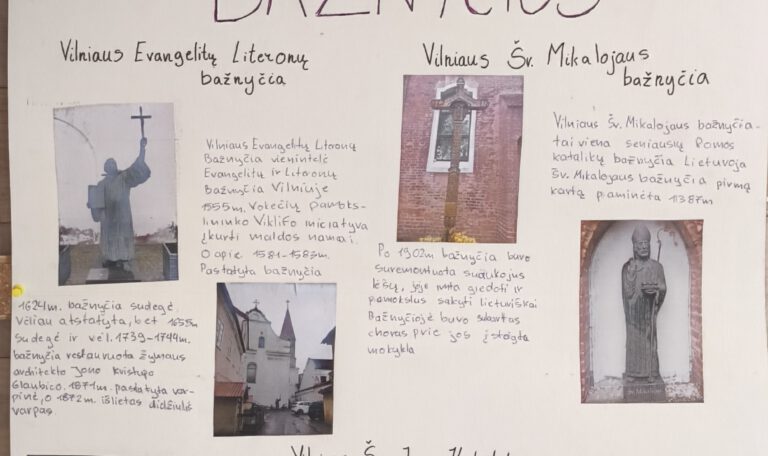 BAŽNYČIOS
Vilniaus Evangelitų Literonų
bažnyčia
Vilniaus Evangelitų Literonų
Bažnyčia vienintelė
Evangelitų ir Literonų
Bažnyčia Vilniuje
1555m. Vokečių pamoks-
lininko Viklifo iniciatyva
įkurti maldos namai.
O apie 1581-1583m.
Pastatyta bažnyčia
1624m. bažnyčia sudegė
vėliau atstatyta, bet 1655m
sudegė ir vėl. 1739-1744m.
bažnyčia restauruota žymaus
architekto Jono Kristupo
Glaubico. 1871m. pastatyta var-
pinė, o 1872m. išlietas didžiulis
varpas
Vilniaus Šv. Mikalojaus
bažnyčia
Po 1902m bažnyčia buvo
suremontuota suaukojus
lėšų, joje imta giedoti ir
pamokslus sakyti lietuviškai
Bažnyčioje buvo suburtas
choras prie jos įsteigta
mokykla
Vilniaus Šv. Mikalojaus bažnyčia-
tai viena seniausių Romos
katalikų bažnyčia Lietuvoja
Šv. Mikalojaus bažnyčia pirmą
kartą paminėta 1387m